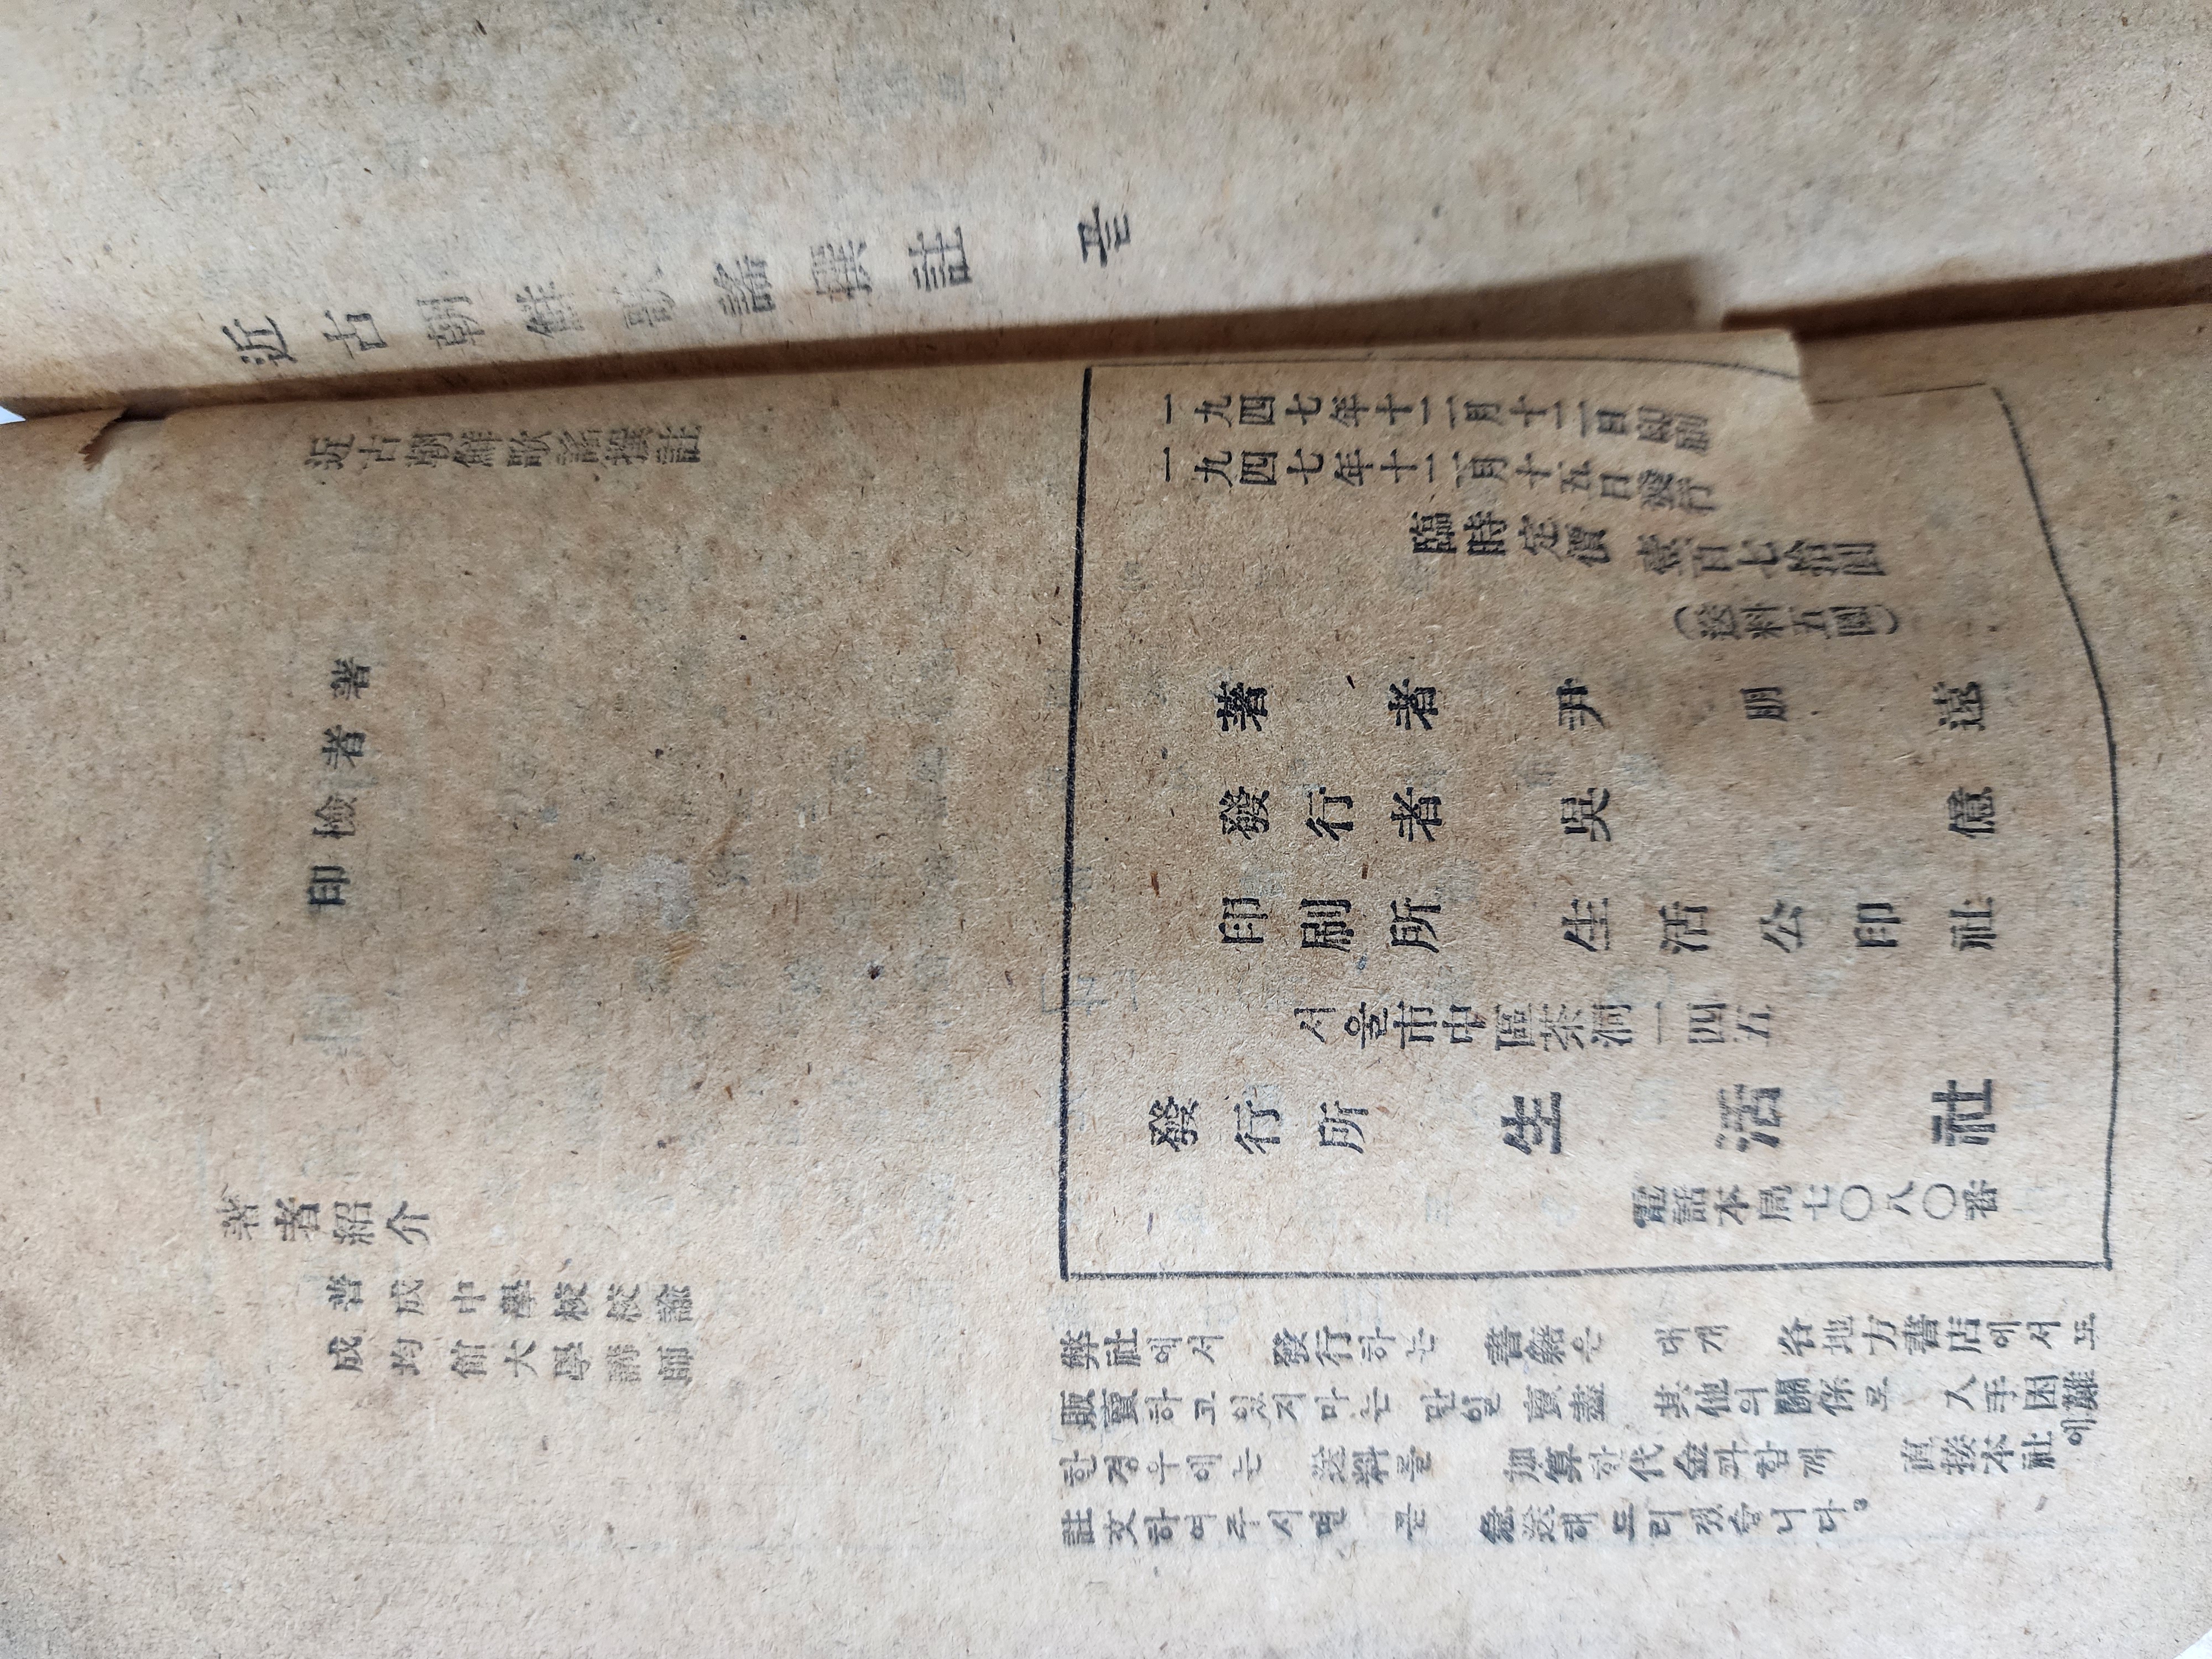 近古朝鮮歌謠撰註 끝
近古朝鮮歌謠撰註
著者檢印
著者紹介
普成中學校校諭
成均館大學講師
一九四七年十二月十二日印刷
一九四七年十二月十五日發行
臨時定價 壹百七拾圓
(送料五圓)
著者 尹朋遠
發行者 吳億
印刷所 生活公印社
서울市中區茶洞一四五
發行所 生活社
電話本局七〇八〇番
弊社에서 發行하는 書籍은 대개 各地方書店에서도
販賣하고있지마는 만일 賣盡 其他의關係로 入手困難
한경우에는 送料를 加算한代金과함께 直接本社에
註文하여주시면 곧 急送해드리겠슴니다。